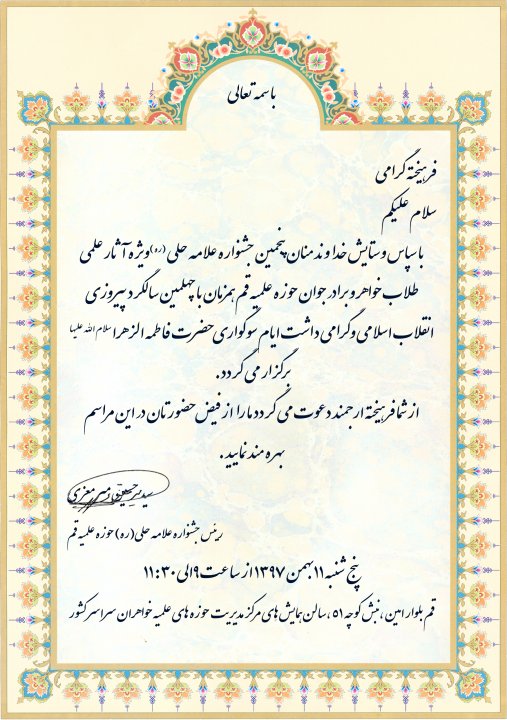 باسمه تعالی
فرهیخته گرامی
سلام علیکم
با سپاس و ستایش خداوند منان پنجمین جشنواره علامه حلی (ره) ویژه آثار علمی
طلاب خواهر و برادر جوان حوزه علمیه قم همزمان با چهلمین سالگرد پیروزی
انقلاب اسلامی و گرامی داشت ایام سوگواری حضرت فاطمه الزهرا سلام الله علیها
برگزار می گردد.
از شما فرهیخته ارجمند دعوت می گردد ما را از فیض حضورتان در این مراسم
بهره مند نمایید.
رئیس جشنواره علامه حلی (ره) حوزه علمیه قم
پنج شنبه ۱۱ بهمن ۱۳۹۷ از ساعت ۹ الی ۱۱:۳۰
قم بلوار امین، نبش کوچه ۵۱، سالن همایش های مرکز مدیریت حوزه های علمیه خواهران سراسر کشور